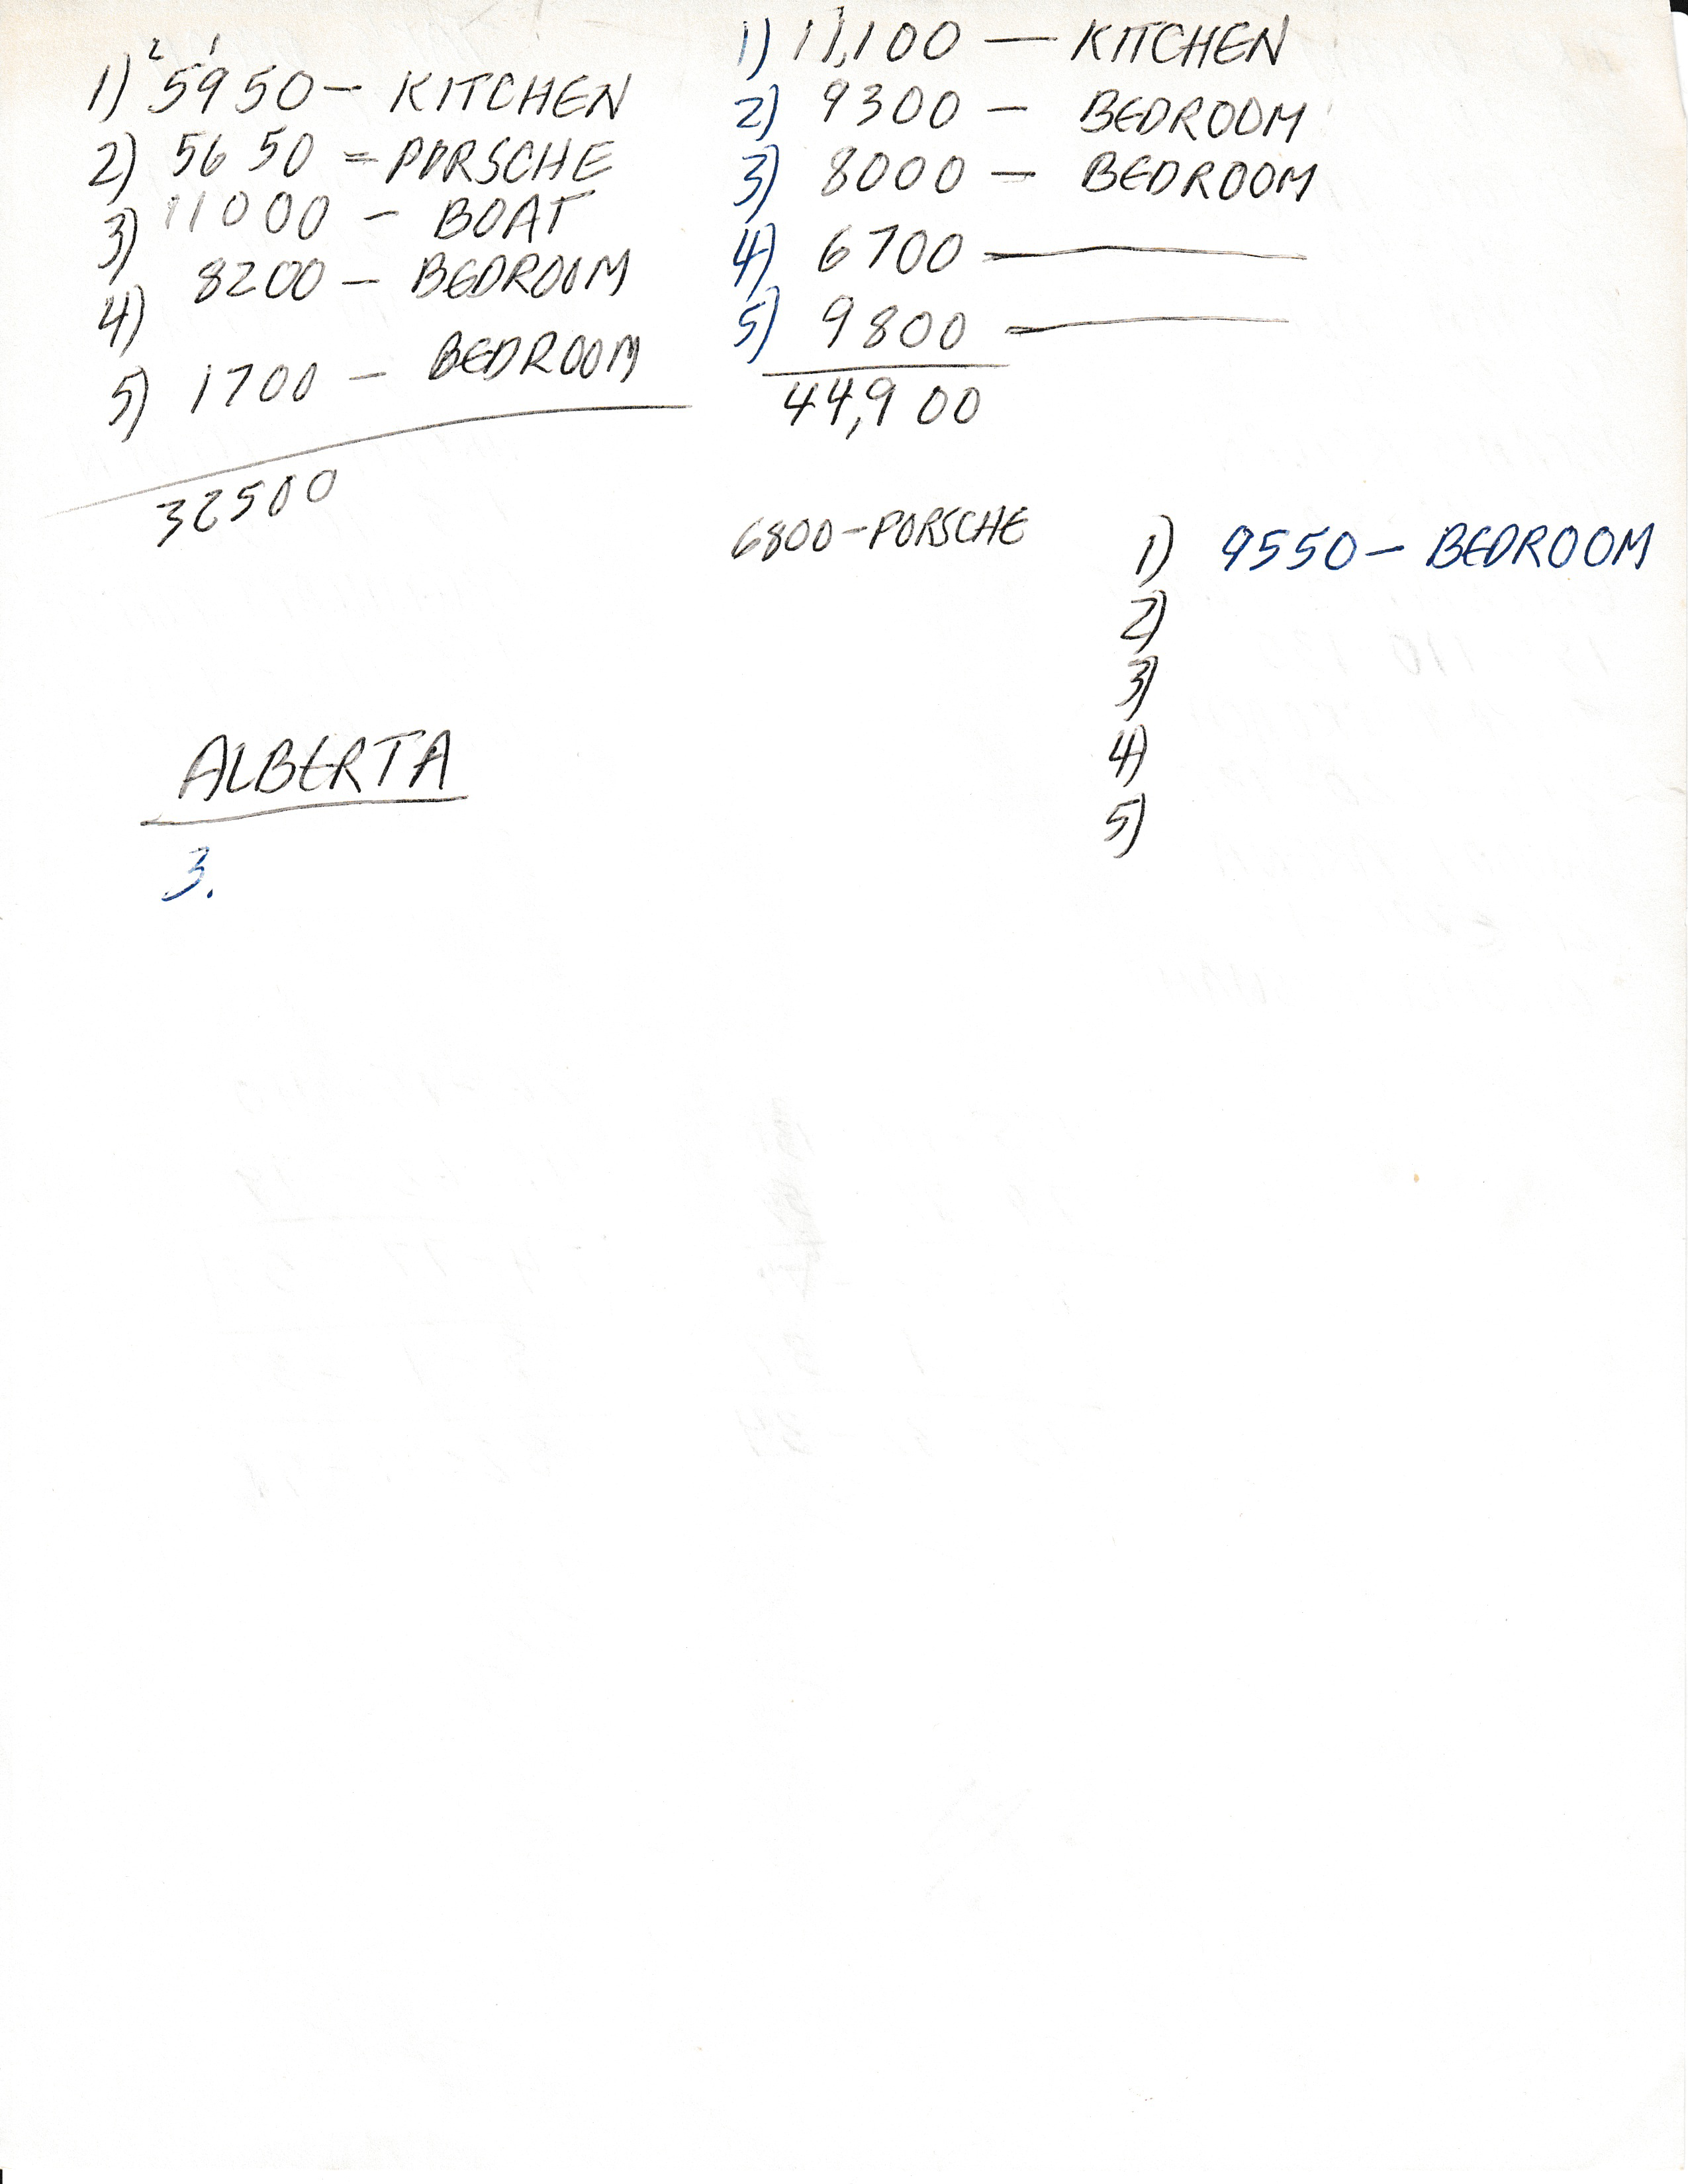 1) 5950 — KITCHEN
2) 5650 = PORSCHE
3) 11000 — BOAT
4) 8200 — BEDROOM
5) 1700 — BEDROOM
32500
1) 11,100 — KITCHEN
2) 9300 — BEDROOM
3) 8000 — BEDROOM
4) 6700 —
5) 9800 —
44,900
6800 — PORSCHE
1) 9550 — BEDROOM
2)
3)
4)
5)
ALBERTA
3.